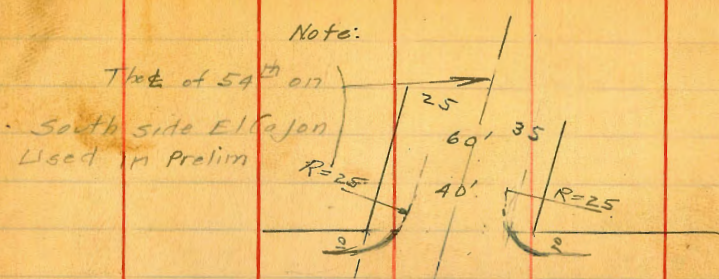 Note:
The ℄ of 54th on
South side El Cajon
Used in Prelim
25
60' 35
R=25
40'
R=25